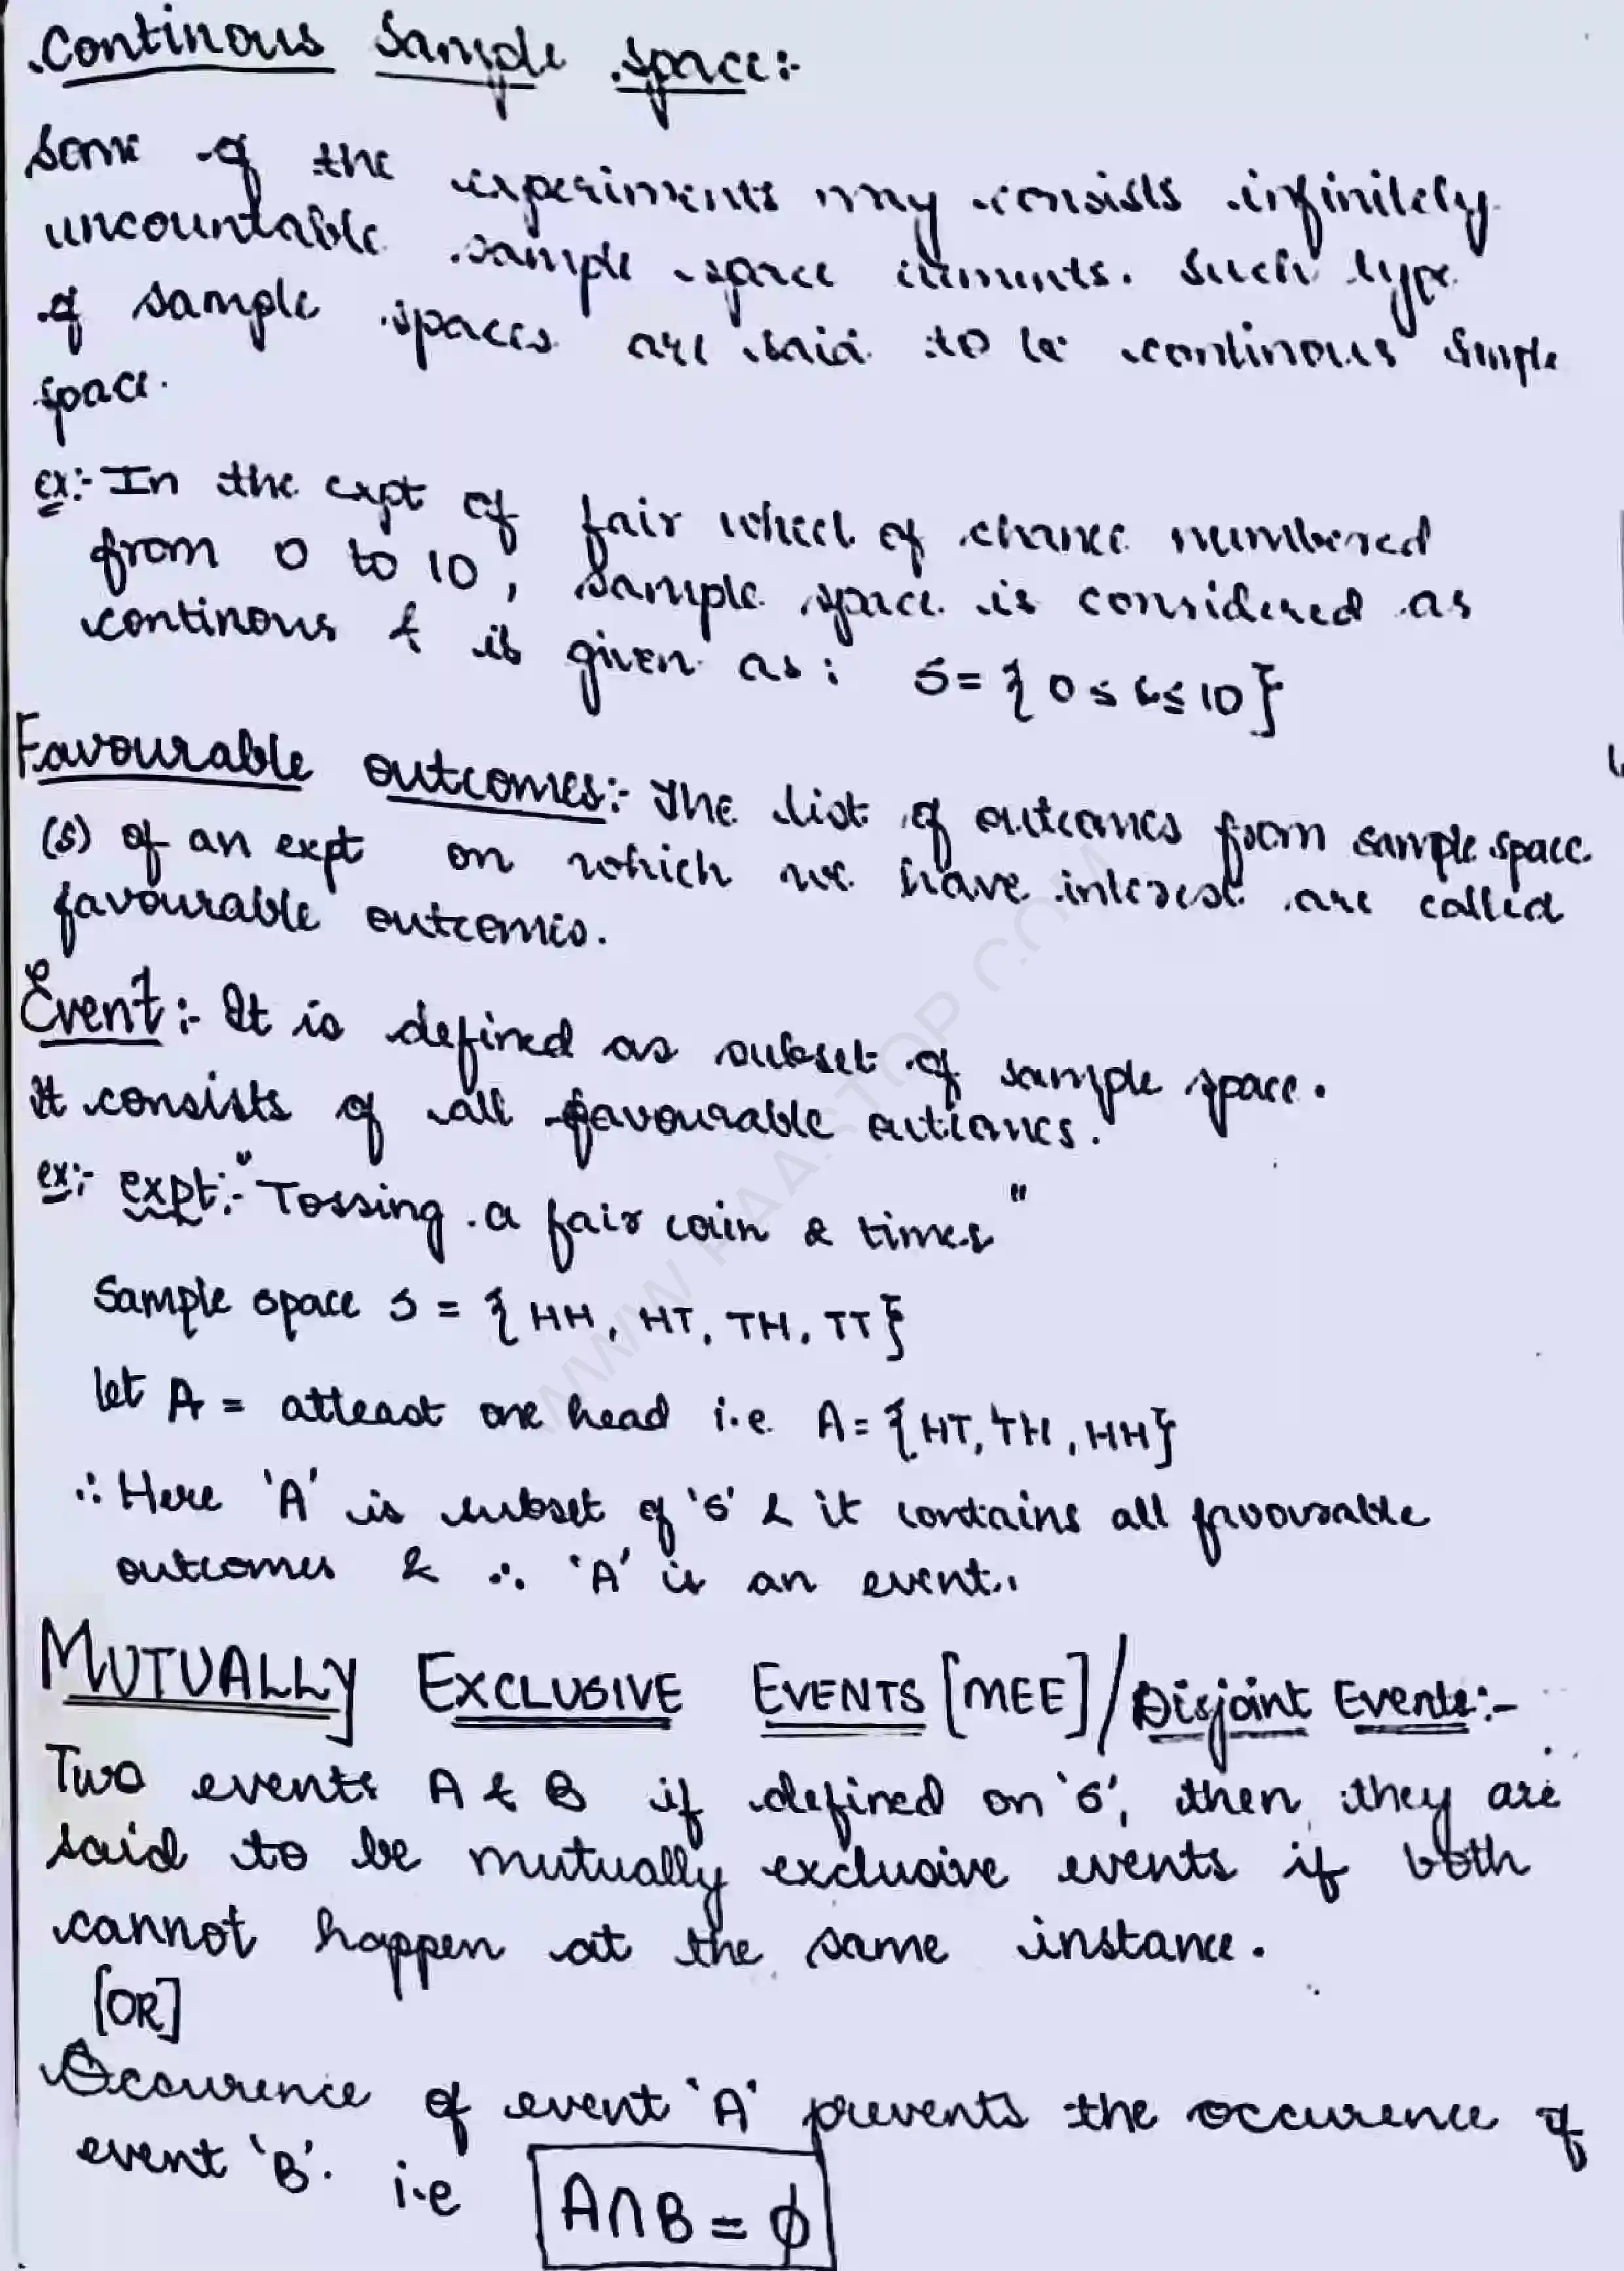 Continous Sample space:-
Some of the experiments may consists infinitely
uncountable sample space elements. Such type
of sample spaces are said to be continous sample
space.
ex:- In the expt of fair wheel of chance numbered
from 0 to 10, sample space is considered as
continous & is given as: S = { 0 ≤ s ≤ 10 }
Favourable outcomes:- The list of outcomes from sample space
(s) of an expt on which we have interest are called
favourable outcomes.
Event:- It is defined as subset of sample space.
It consists of all favourable outcomes.
ex:- expt:- "Tossing a fair coin 2 times"
Sample space S = { HH, HT, TH, TT }
let A = atleast one head i.e A = { HT, TH, HH }
∴ Here 'A' is subset of 'S' & it contains all favourable
outcomes & ∴ 'A' is an event.
MUTUALLY EXCLUSIVE EVENTS [MEE] / Disjoint Events:-
Two events A & B if defined on 'S', then they are
said to be mutually exclusive events if both
cannot happen at the same instance.
[OR]
Occurence of event 'A' prevents the occurence of
event 'B'. i.e A∩B = ϕ